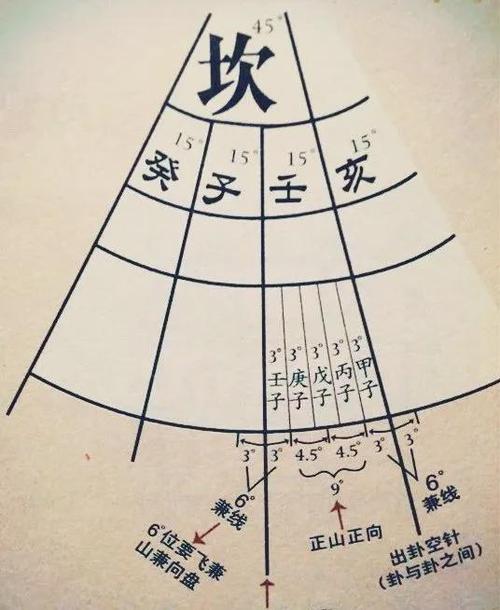 45°
坎
15° 15° 15° 15°
癸 子 壬 亥
3° 3° 3° 3° 3°
壬子 庚子 戊子 丙子 甲子
3° 3° 4.5° 4.5° 3° 3°
6°
兼线
9°
6°
兼线
6°位要飞兼
山兼向盘
正山正向
出卦空针
(卦与卦之间)